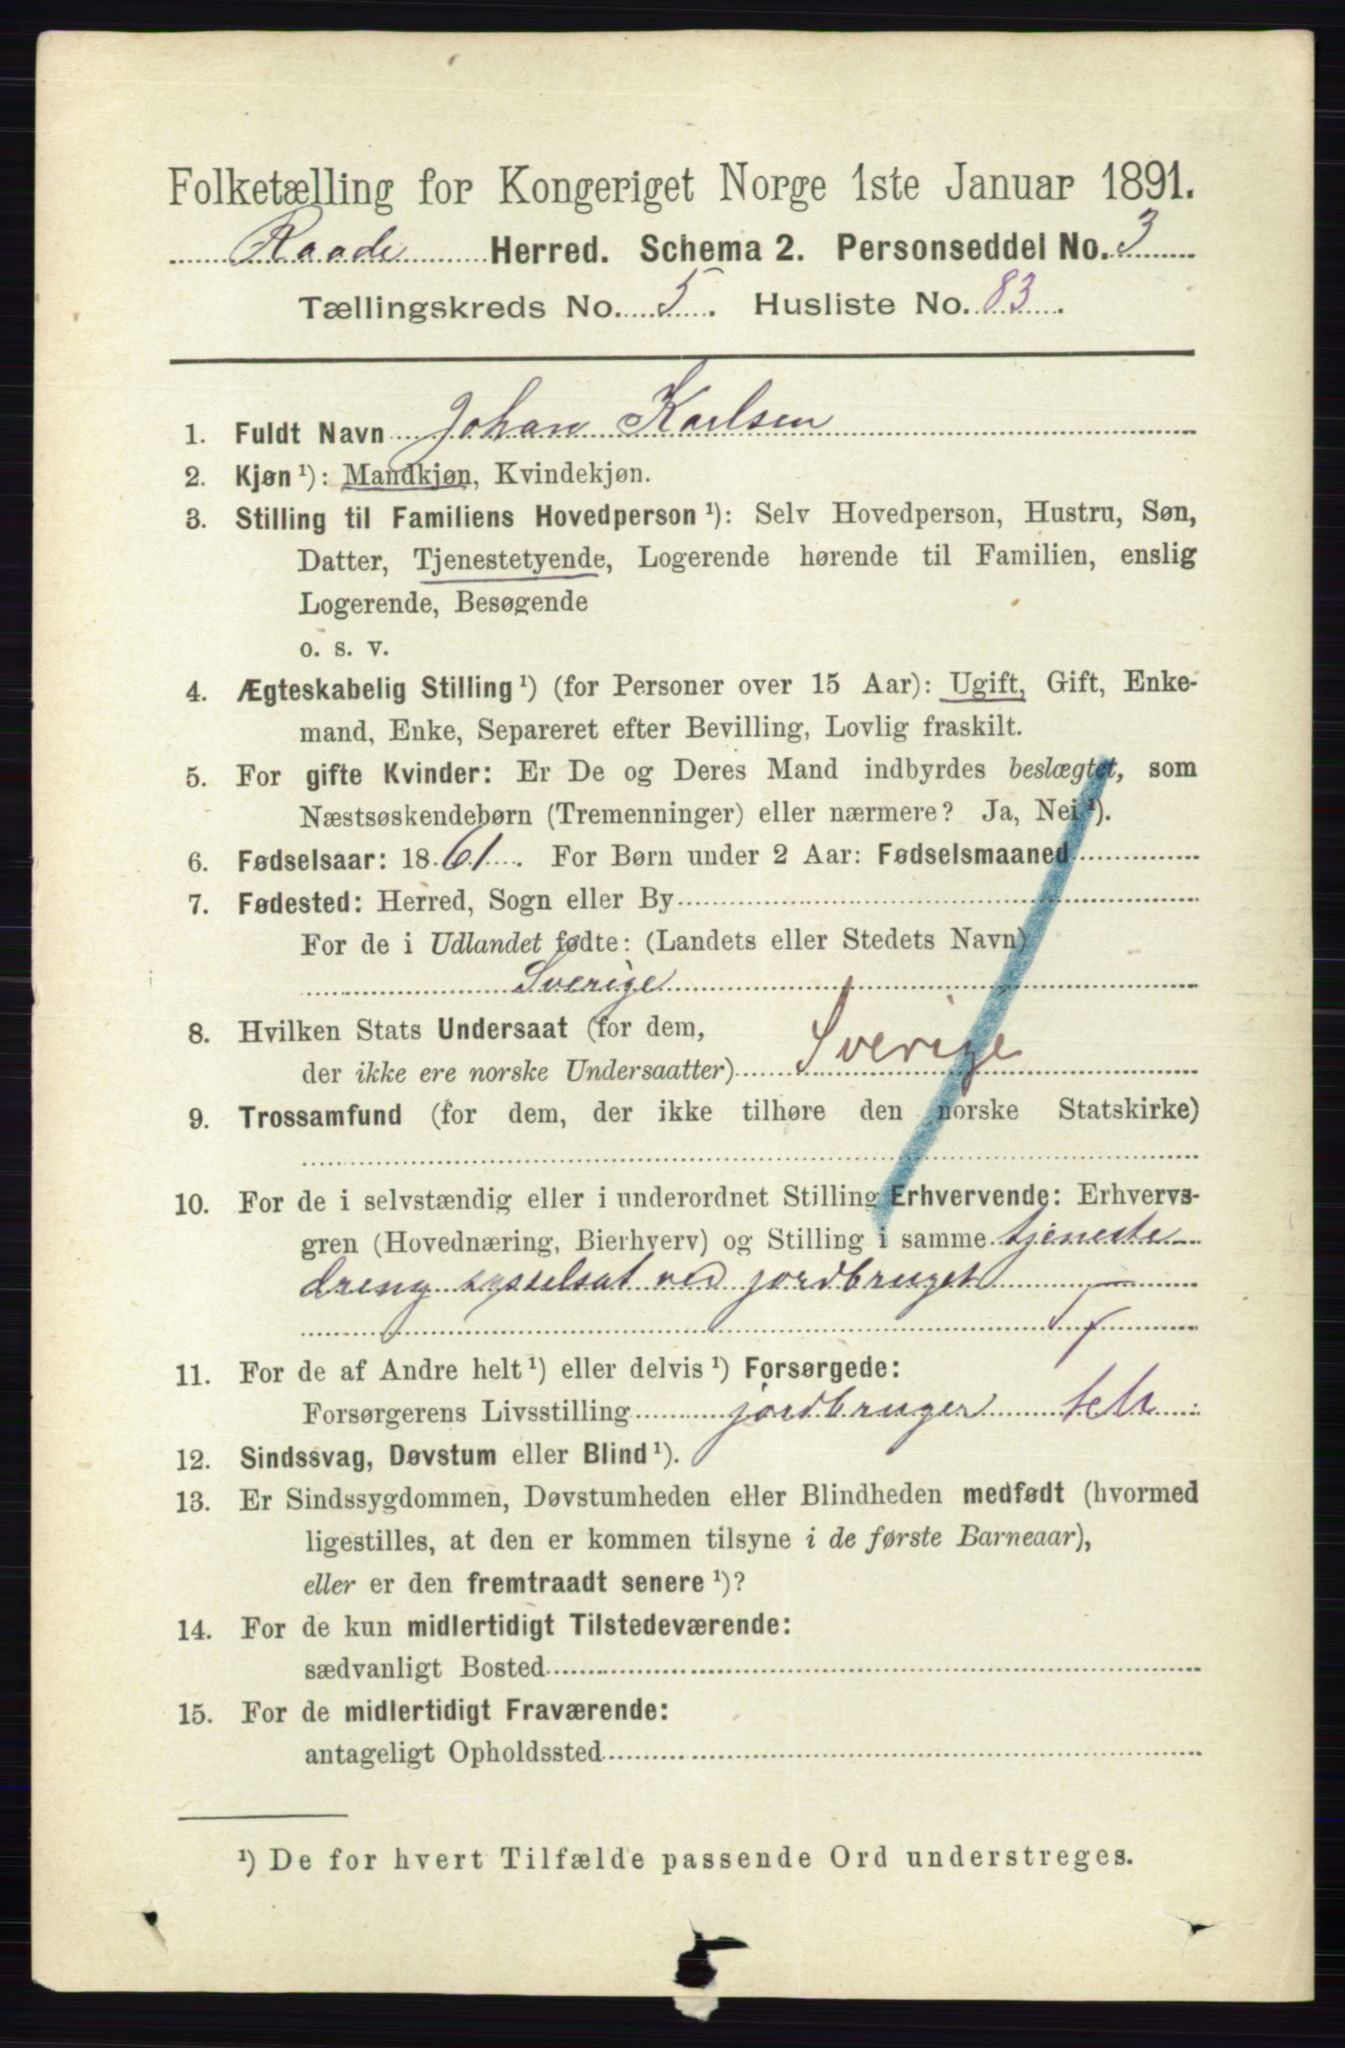 Folketælling for Kongeriget Norge 1ste Januar 1891.
Raade Herred. Schema 2. Personseddel No. 3
Tællingskreds No. 5. Husliste No. 83.
1. Fuldt Navn Johan Karlsen
2. Kjøn ¹): Mandkjøn, Kvindekjøn.
3. Stilling til Familiens Hovedperson ¹): Selv Hovedperson, Hustru, Søn,
Datter, Tjenestetyende, Logerende hørende til Familien, enslig
Logerende, Besøgende
o. s. v.
4. Ægteskabelig Stilling ¹) (for Personer over 15 Aar): Ugift, Gift, Enke-
mand, Enke, Separeret efter Bevilling, Lovlig fraskilt.
5. For gifte Kvinder: Er De og Deres Mand indbyrdes beslægtet, som
Næstsøskendebørn (Tremenninger) eller nærmere? Ja, Nei ¹).
6. Fødselsaar: 1861. For Børn under 2 Aar: Fødselsmaaned
7. Fødested: Herred, Sogn eller By
For de i Udlandet fødte: (Landets eller Stedets Navn)
Sverige
8. Hvilken Stats Undersaat (for dem,
der ikke ere norske Undersaatter) Sverige
9. Trossamfund (for dem, der ikke tilhøre den norske Statskirke)
10. For de i selvstændig eller i underordnet Stilling Erhvervende: Erhvervs-
gren (Hovednæring, Bierhverv) og Stilling i samme tjeneste
dreng sysselsat ved jordbruget
11. For de af Andre helt ¹) eller delvis ¹) Forsørgede:
Forsørgerens Livsstilling jordbruger
12. Sindssvag, Døvstum eller Blind ¹).
13. Er Sindssygdommen, Døvstumheden eller Blindheden medfødt (hvormed
ligestilles, at den er kommen tilsyne i de første Barneaar),
eller er den fremtraadt senere ¹)?
14. For de kun midlertidigt Tilstedeværende:
sædvanligt Bosted
15. For de midlertidigt Fraværende:
antageligt Opholdssted
¹) De for hvert Tilfælde passende Ord understreges.